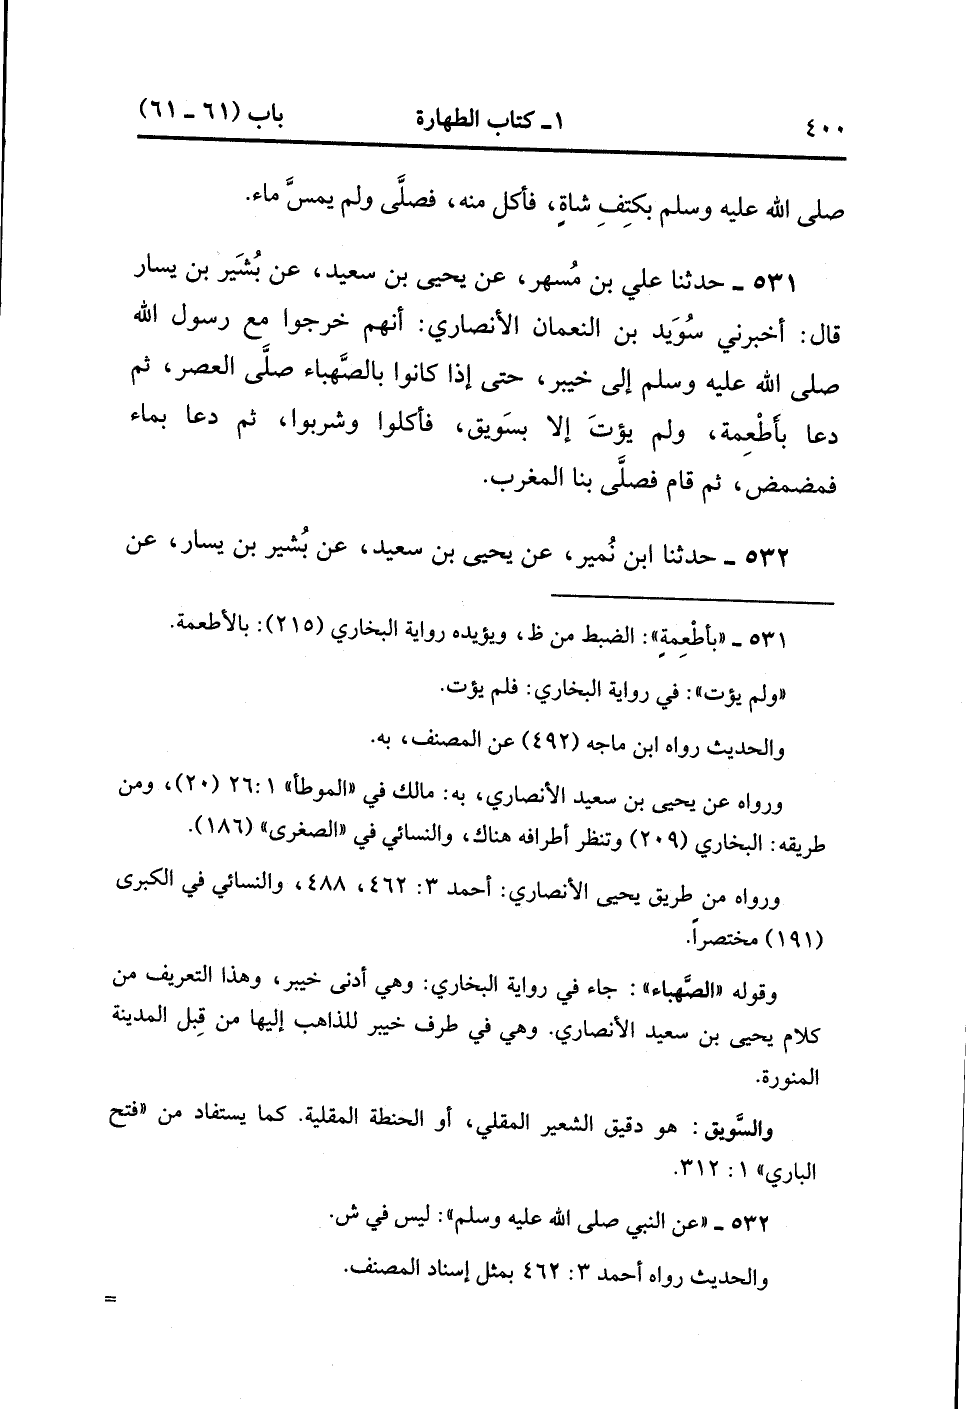 ٤٠٠ ١ـ كتاب الطهارة باب (٦١ ـ ٦١)
صلى الله عليه وسلم بكتِفِ شاةٍ، فأكل منه، فصلَّى ولم يمسَّ ماء.
٥٣١ ـ حدثنا علي بن مُسهر، عن يحيى بن سعيد، عن بُشَير بن يسار
قال: أخبرني سُوَيد بن النعمان الأنصاري: أنهم خرجوا مع رسول الله
صلى الله عليه وسلم إلى خيبر، حتى إذا كانوا بالصَّهباء صلَّى العصر، ثم
دعا بأَطْعِمة، ولم يؤتَ إلا بسَويق، فأكلوا وشربوا، ثم دعا بماء
فمضمض، ثم قام فصلَّى بنا المغرب.
٥٣٢ ـ حدثنا ابن نُمير، عن يحيى بن سعيد، عن بُشير بن يسار، عن
٥٣١ ـ «بأطْعِمةٍ»: الضبط من ظ، ويؤيده رواية البخاري (٢١٥): بالأطعمة.
«ولم يؤت»: في رواية البخاري: فلم يؤت.
والحديث رواه ابن ماجه (٤٩٢) عن المصنف، به.
ورواه عن يحيى بن سعيد الأنصاري، به: مالك في «الموطأ» ١ :٢٦ (٢٠)، ومن
طريقه: البخاري (٢٠٩) وتنظر أطرافه هناك، والنسائي في «الصغرى» (١٨٦).
ورواه من طريق يحيى الأنصاري: أحمد ٣: ٤٦٢، ٤٨٨، والنسائي في الكبرى
(١٩١) مختصراً.
وقوله «الصَّهباء» : جاء في رواية البخاري: وهي أدنى خيبر، وهذا التعريف من
كلام يحيى بن سعيد الأنصاري. وهي في طرف خيبر للذاهب إليها من قِبل المدينة
المنورة.
والسَّويق : هو دقيق الشعير المقلي، أو الحنطة المقلية. كما يستفاد من «فتح
الباري» ١ : ٣١٢.
٥٣٢ ـ «عن النبي صلى الله عليه وسلم»: ليس في ش.
والحديث رواه أحمد ٣: ٤٦٢ بمثل إسناد المصنف.
=